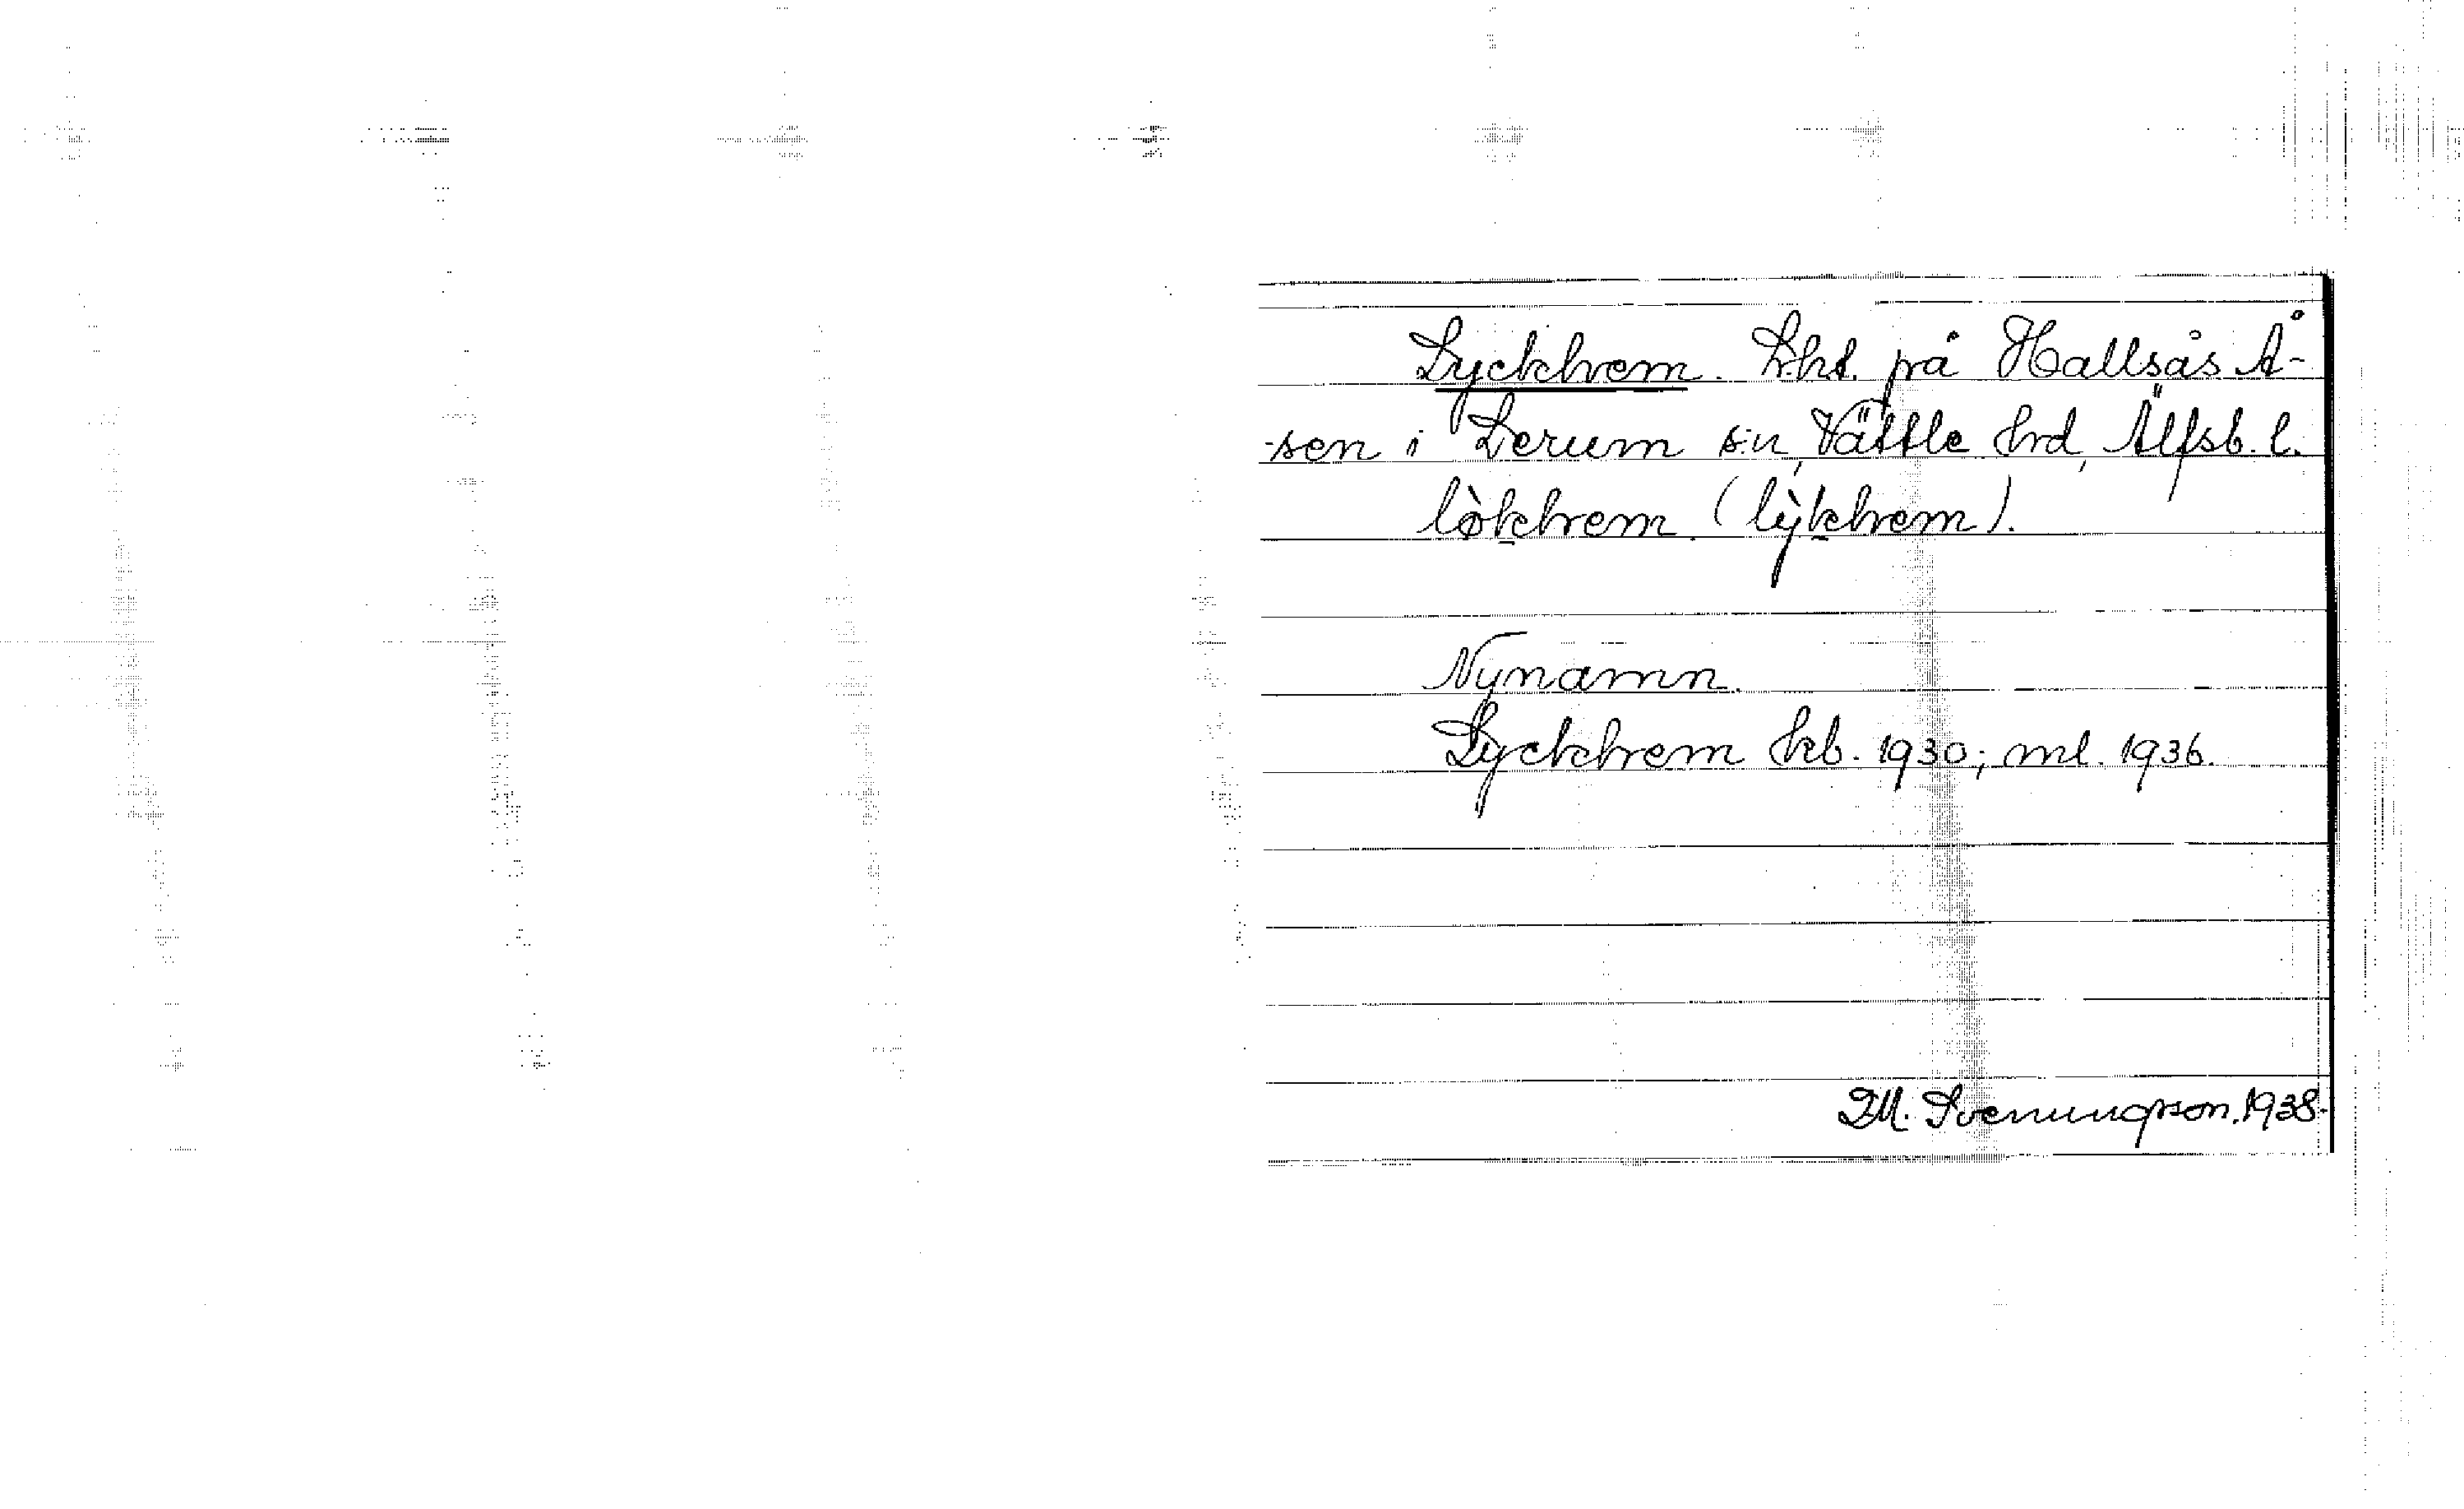 Lyckhem. Lht. på Hallsås Å-
sen i Lerum s:n, Vättle hrd, Älfsb. l.
lø̀khem (lỳkhem).
Nynamn.
Lyckhem kb. 1930; ml. 1936.
D.M. Svenungsson. 1938